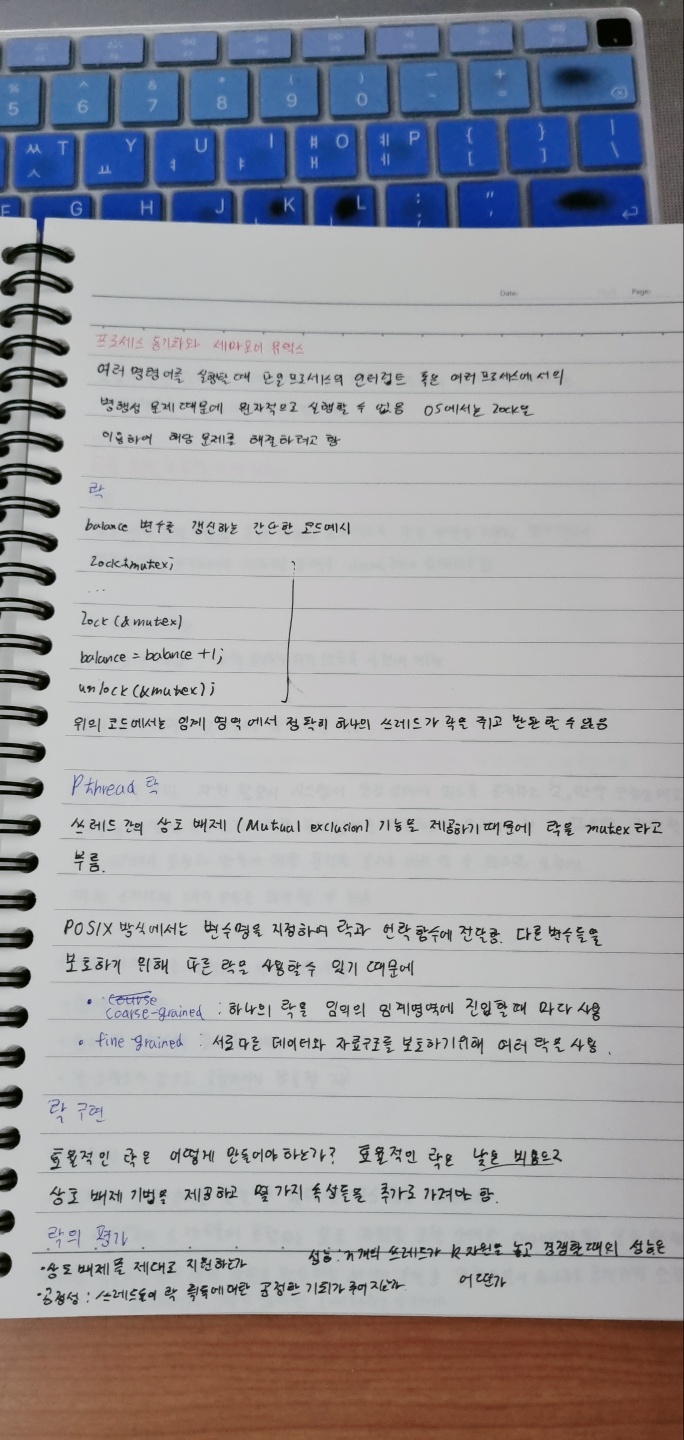 % 5
^ 6
& 7
* 8
( 9
) 0
_ -
+ =
ㅆ T ㅅ
Y ㅛ
U ㅕ
I ㅑ
ㅒ O ㅐ
ㅖ P ㅔ
{ [
} ]
| \
F
G
H
J
K
L
: ;
" '
Date:
Page:
프로세스 동기화와 세마포어 뮤텍스
여러 명령어를 실행할 때 단일 프로세스의 인터럽트 혹은 여러 프로세스에서의
병행성 문제 때문에 원자적으로 실행할 수 없음 OS에서는 lock을
이용하여 해당 문제를 해결하려고 함
락
balance 변수를 갱신하는 간단한 코드예시
lock_t mutex;
...
lock (&mutex)
balance = balance +1;
unlock (&mutex);
위의 코드에서는 임계 영역에서 정확히 하나의 쓰레드가 락을 쥐고 반환할 수 있음
Pthread 락
쓰레드 간의 상호 배제 (Mutual exclusion) 기능을 제공하기 때문에 락을 mutex라고
부름.
POSIX 방식에서는 변수명을 지정하여 락과 언락 함수에 전달함. 다른 변수들을
보호하기 위해 다른 락을 사용할 수 있기 때문에
• coarse-grained : 하나의 락을 임의의 임계영역에 진입할 때 마다 사용
• fine grained : 서로 다른 데이터와 자료구조를 보호하기위해 여러 락을 사용.
락 구현
효율적인 락은 어떻게 만들어야 하는가? 효율적인 락은 낮은 비용으로
상호 배제 기법을 제공하고 몇 가지 속성들을 추가로 가져야 함.
락의 평가
•상호 배제를 제대로 지원하는가
•공정성 : 쓰레드들이 락 획득에 대한 공정한 기회가 주어지는가
성능 : 여러개의 쓰레드가 자원을 놓고 경쟁할 때의 성능은
어떤가